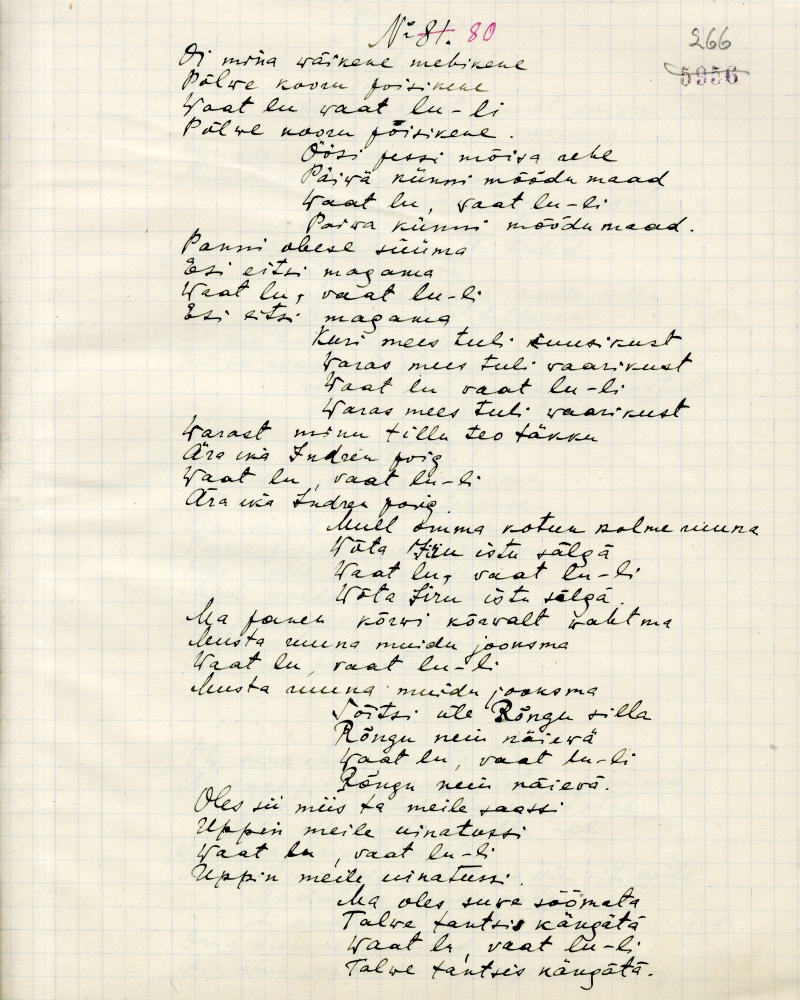 № 81. 80
266
5956
Oi mina wäikene mehikene
Põlwe kooru poisikene
Waat lu waat lu-li
Põlwe kooru poisikene.
Öösi pessi mõisa rehe
Päiwä künni möödu maad
Waat lu, vaat lu-li
Päiwa künni möödu maad.
Panni obese süüma
Esi eitsi magama
Waat lu, vaat lu-li
Esi eitsi magama
Kuri mees tuli kuusikust
Waras mees tuli waarikust
Waat lu vaat lu-li
Waras mees tuli waarikust
Warast minu tillu teo täkku
Ära ikä Indreu poig
Waat lu, vaat lu-li
Ära ikä Indreu poig.
Mull omma kotun kolme ruuna
Wõta Jüu istu sälgä
Waat lu, vaat lu-li
Wõta Jiru istu sälgä.
Ma panen kõrwi kõrwalt wahtma
Musta ruuna muidu jooksma
Waat lu, vaat lu-li
Musta ruuna muidu jooksma
Sõitsi üle Rõngu silla
Rõngu nein näiewä
Waat lu, vaat lu-li
Rõngu nein näievä.
Oles sii miis ta meile saassi
Uppin meile uinatussi
Waat lu, vaat lu-li
Uppin meile uinatussi.
Ma oles suwe söömata
Talwe tantsis kängätä
Waat lu, vaat lu-li
Talwe tantsis kängätä.